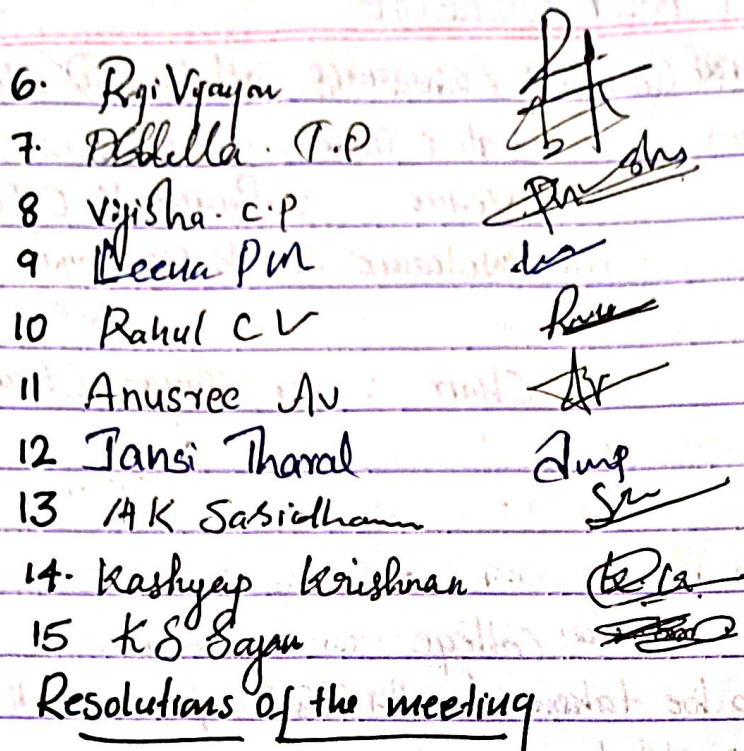 6. Raji Vijayan
7. Abdulla. T.P
8 Vijisha. C.P
9 Leena PM
10 Rahul C V
11 Anusree AV
12 Jansi Tharal
13 AK Sasidharan
14. Kashyap Krishnan
15 K S Sajan
Resolutions of the meeting